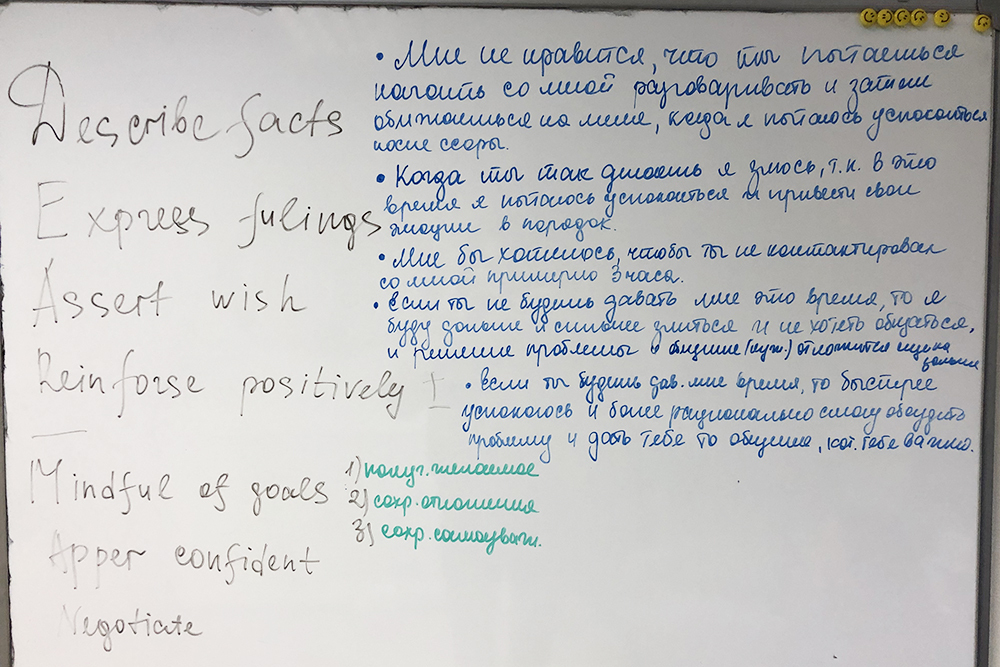 Describe facts
Express fulings
Assert wish
Reinforse positively ±
Mindful of goals
Apper confident
Negotiate
• Мне не нравится, что ты пытаешься
со мной разговаривать и затем
обижаешься на меня, когда я пытаюсь успокоиться
после ссоры.
• Когда ты так делаешь я злюсь, т.к. в это
время я пытаюсь успокоиться и привести свои
эмоции в порядок.
• Мне бы хотелось, чтобы ты не контактировал
со мной примерно 3 часа.
• если ты не будешь давать мне это время, то я
буду дольше и сильнее злиться и не хотеть общаться,
и решение проблемы и общение (нуж.) отложится еще на
дольше
• если ты будешь дав. мне время, то быстрее
успокоюсь и более рационально смогу обсудить
проблему и дать тебе то общение, кот. тебе важно.
1) получ. желаемое
2) сохр. отношения
3) сохр. самоуваж.